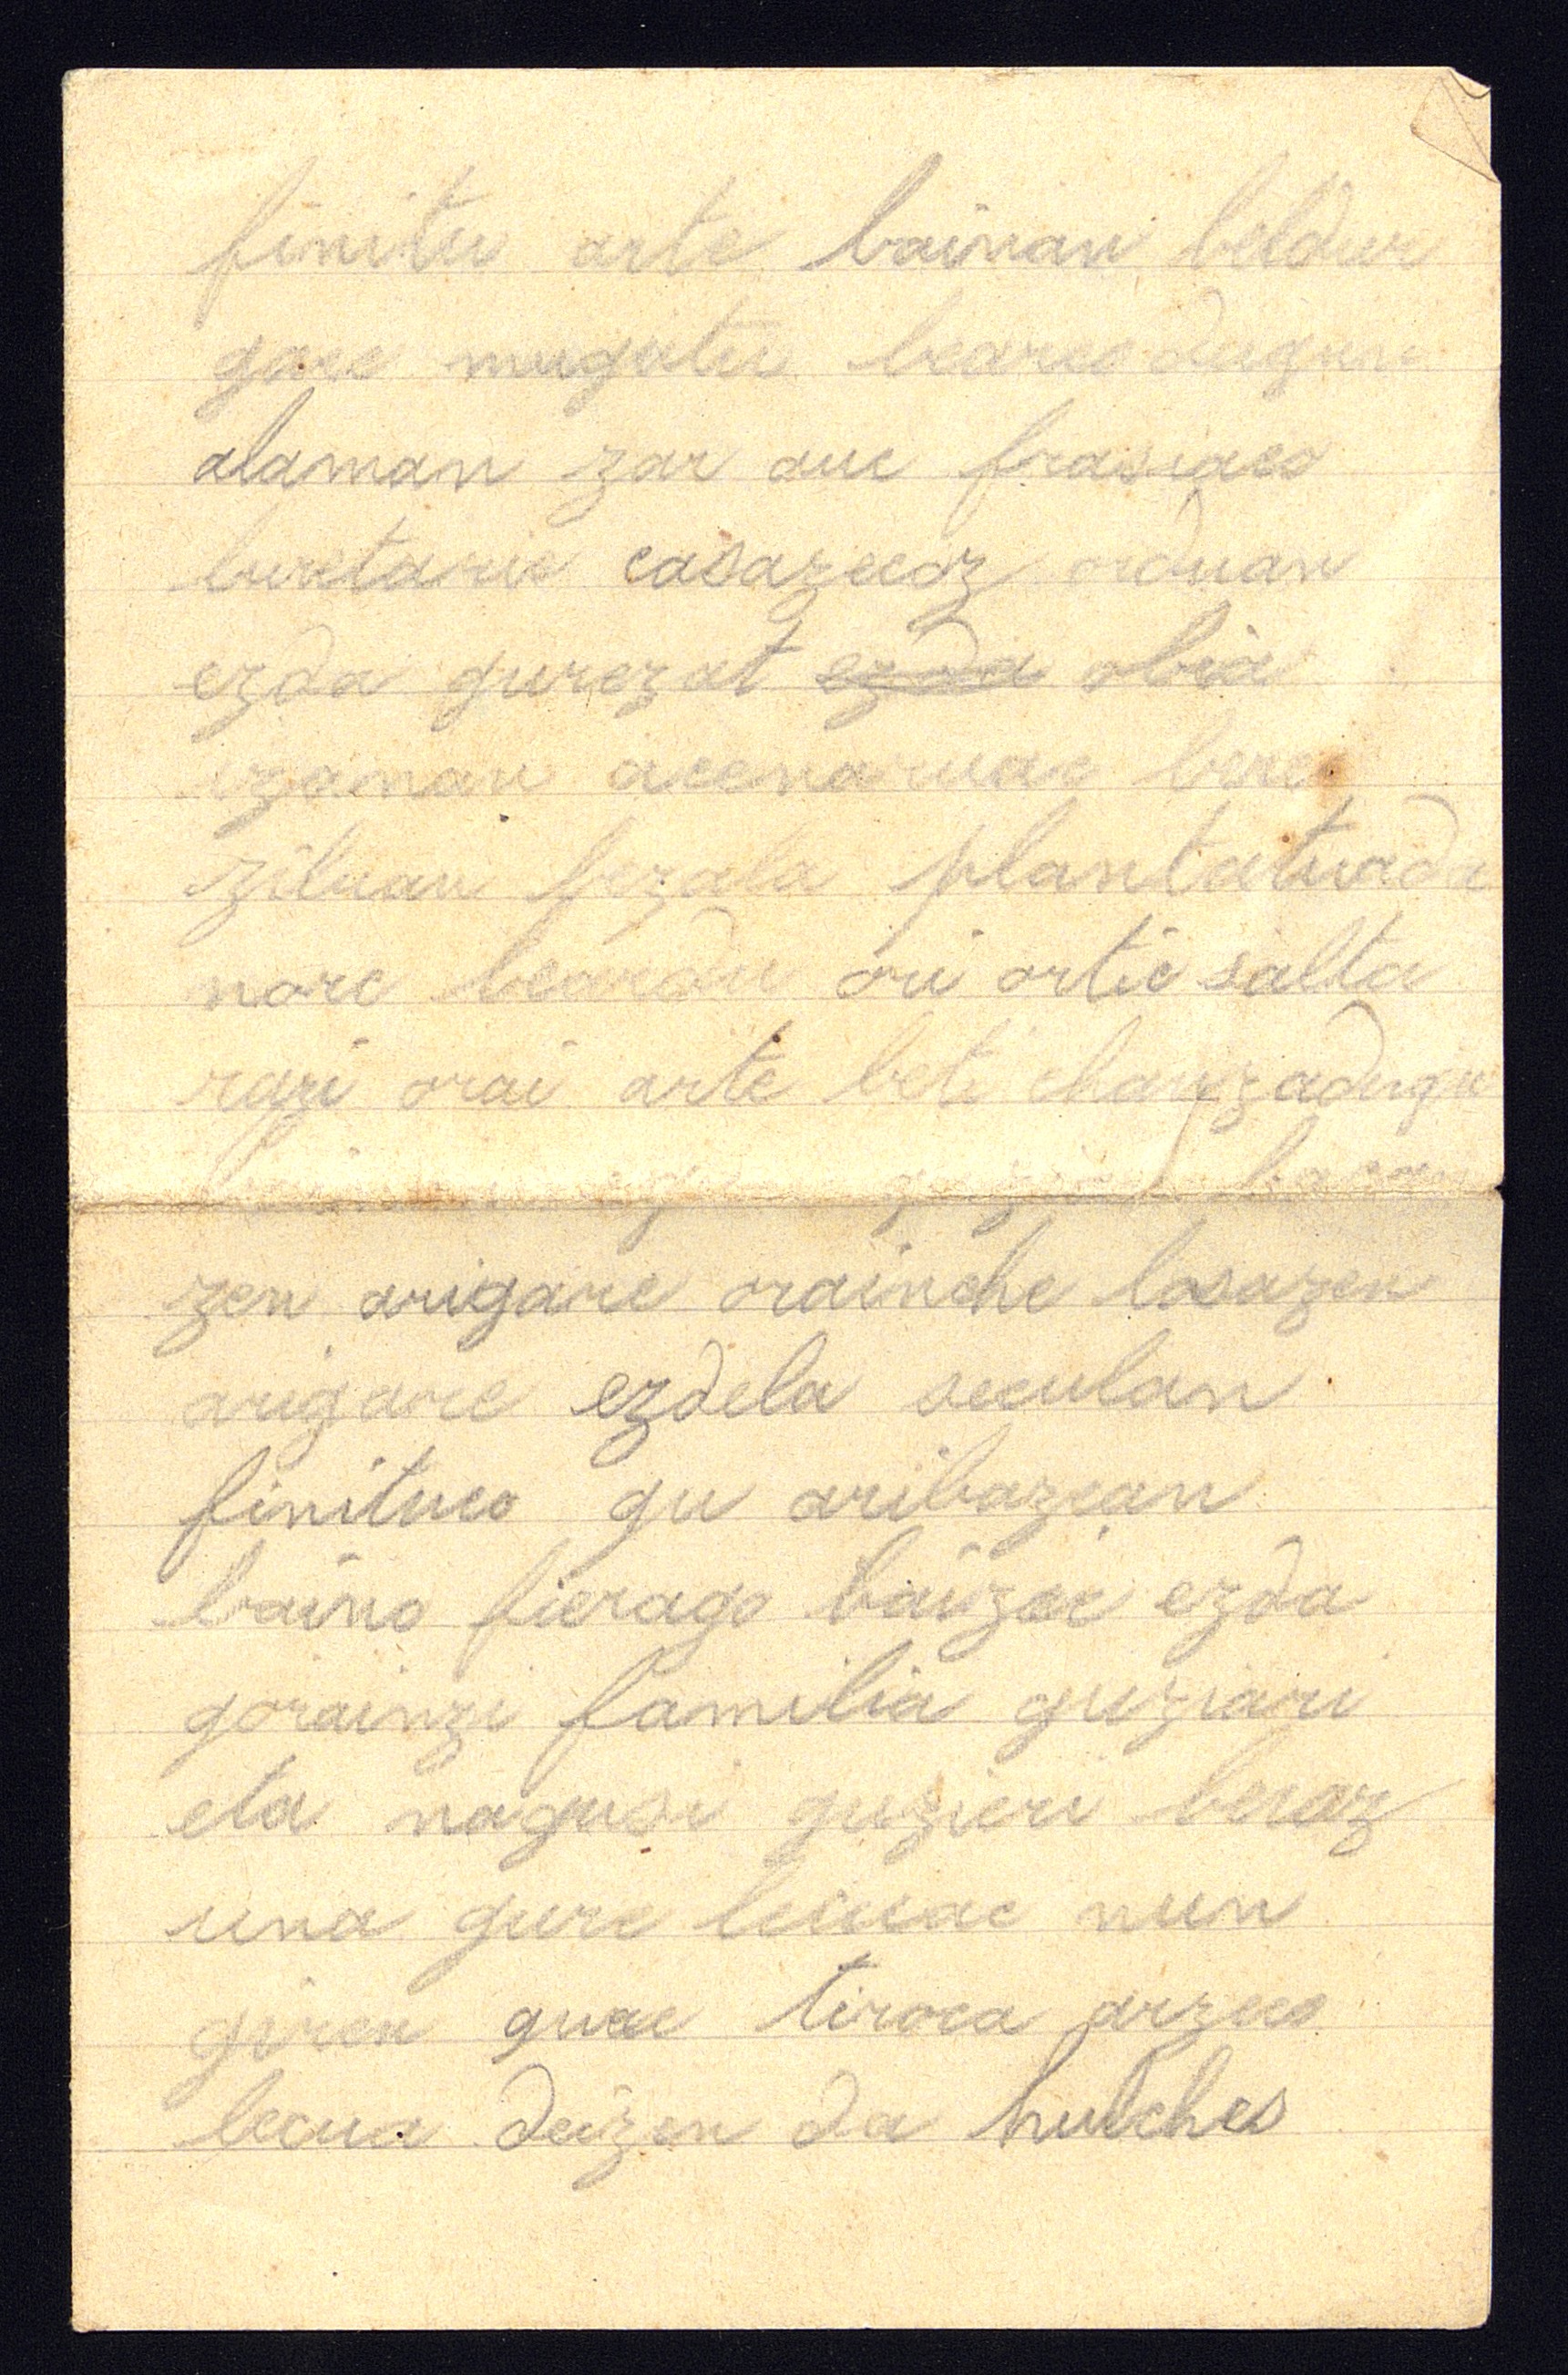 finitu arte bainan beldur
gare mugitu bearco dugun
alaman zar auc frasiaco
luretaric casazecoz orduan
ezda gurezat ezda obia
izaman acenaruac bere
ziluan bezala plantatuada
norc beardu ori ortic salta
razi orai arte beti chanzadugu
zen arigare orainche lasazen
arigare ezdela seculan
finituco gu aribazean
baino fierago baizic ezda
gorainzi familia guziari
eta nagusi guzieri beraz
una gure lecuac nun
giren guac tiroca arzeco
lecua deizen da hulches